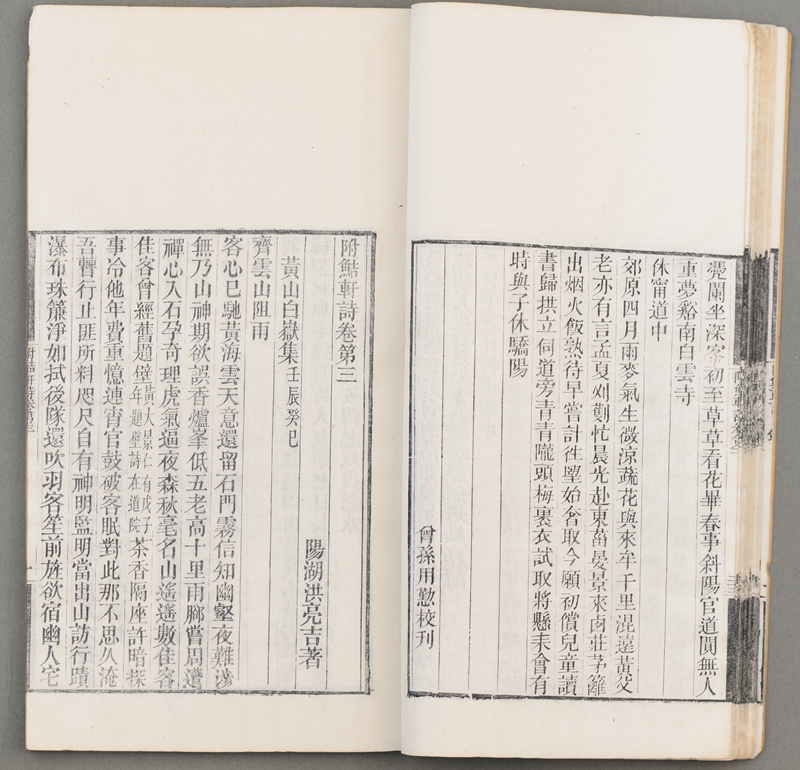 凴闌坐深宻初至草草看花畢春事斜陽官道闃無人
重夢谿南白雲寺
休甯道中
郊原四月雨麥氣生微涼蔬花與來牟千里混遠黃父
老亦有言孟夏刈劚忙晨光赴東菑晏景來囱莊茅籬
出烟火飯熟待早嘗計徃朢始畬取今願初償兒童讀
書歸拱立伺道旁青青隴頭梅裹衣試取將懸耒會有
時與子休驕陽
曾孫用懃校刊
附鮚軒詩卷第三
陽湖洪亮吉著
黃山白嶽集壬辰癸巳
齊雲山阻雨
客心已馳黃海雲天意還留石門霧信知幽壑夜難涉
無乃山神期欲誤香爐峯低五老高十里雨腳嘗周遭
禪心入石孕奇理虎氣逼夜森秋毫名山遙遙數佳客
佳客曾經舊題壁黃大景仁有戊子年題壁詩在道院茶香隔座許暗探
事冷他年費重憶連宵官鼓破客眠對此那不思久淹
吾暫行止匪所料咫尺自有神明監明當出山訪行蹟
瀑布珠簾淨如拭後隊還吹羽客笙前旌欲宿幽人宅
附鮚軒詩卷第三
一